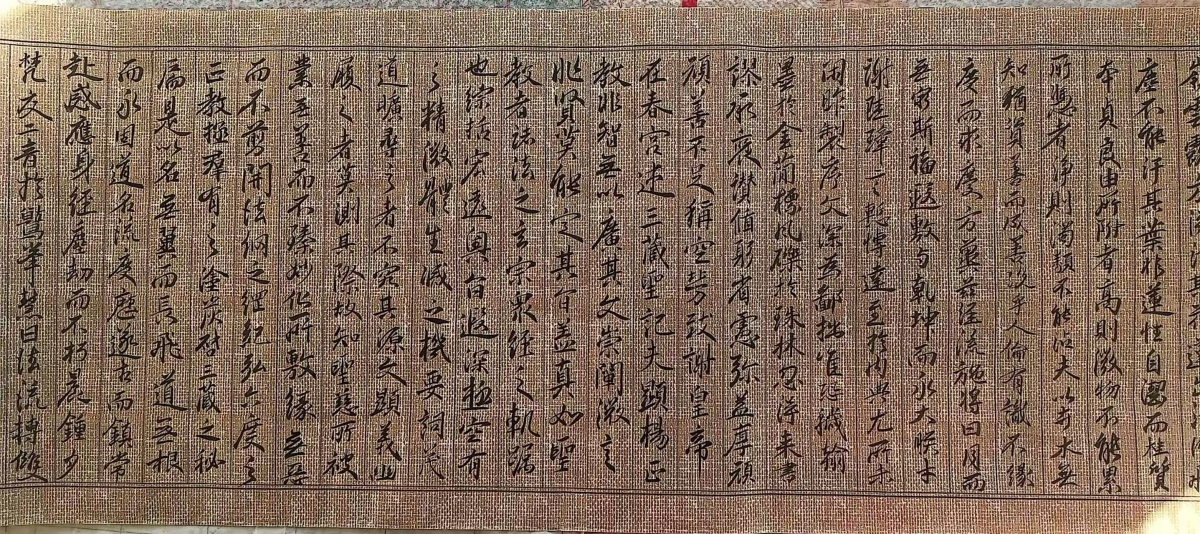 塵不能汙其葉非蓮性自潔而桂質
本貞良由所附者高則微物不能累
所憑者淨則濁類不能沾夫以卉木無
知猶資善而成善況乎人倫有識不緣
慶而求慶方冀茲經流施將日月而
無窮斯福遐敷與乾坤而永大朕才
謝珪璋言慙博達至於內典尤所未
閑昨製序文深為鄙拙唯恐穢翰
墨於金簡標瓦礫於珠林忽得来書
謬承褒讚循躬省慮弥益厚顏
顏善不足稱空勞致謝皇帝
在春宮述三藏聖記夫顯揚正
教非智無以廣其文崇闡微言
非賢莫能定其旨蓋真如聖
教者諸法之玄宗衆經之軌躅
也綜括宏遠奧旨遐深極空有
之精微體生滅之機要詞茂
道曠尋之者不究其源文顯義幽
履之者莫測其際故知聖慈所被
業無善而不臻妙化所敷緣無惡
而不翦開法網之綱紀弘六度之
正教拯羣有之塗炭啓三藏之秘
扃是以名無翼而長飛道無根
而永固道名流慶歷遂古而鎮常
赴感應身經塵劫而不朽晨鍾夕
梵交二音於鷲峯慧日法流轉雙